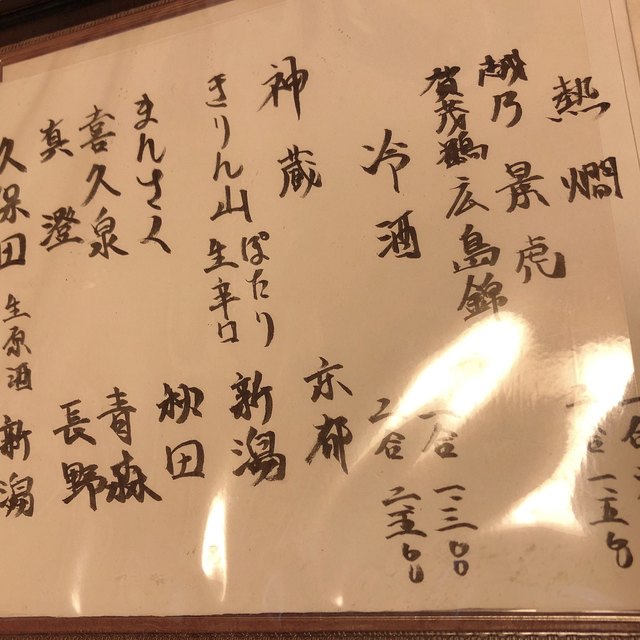 熱燗
越乃景虎
賀茂鶴広島錦
一合 一、三〇〇
二合 二、五〇〇
冷酒
神蔵 京都
きりん山 ぽたり 生辛口 新潟
まんさく 秋田
喜久泉 青森
真澄 長野
久保田 生原酒 新潟